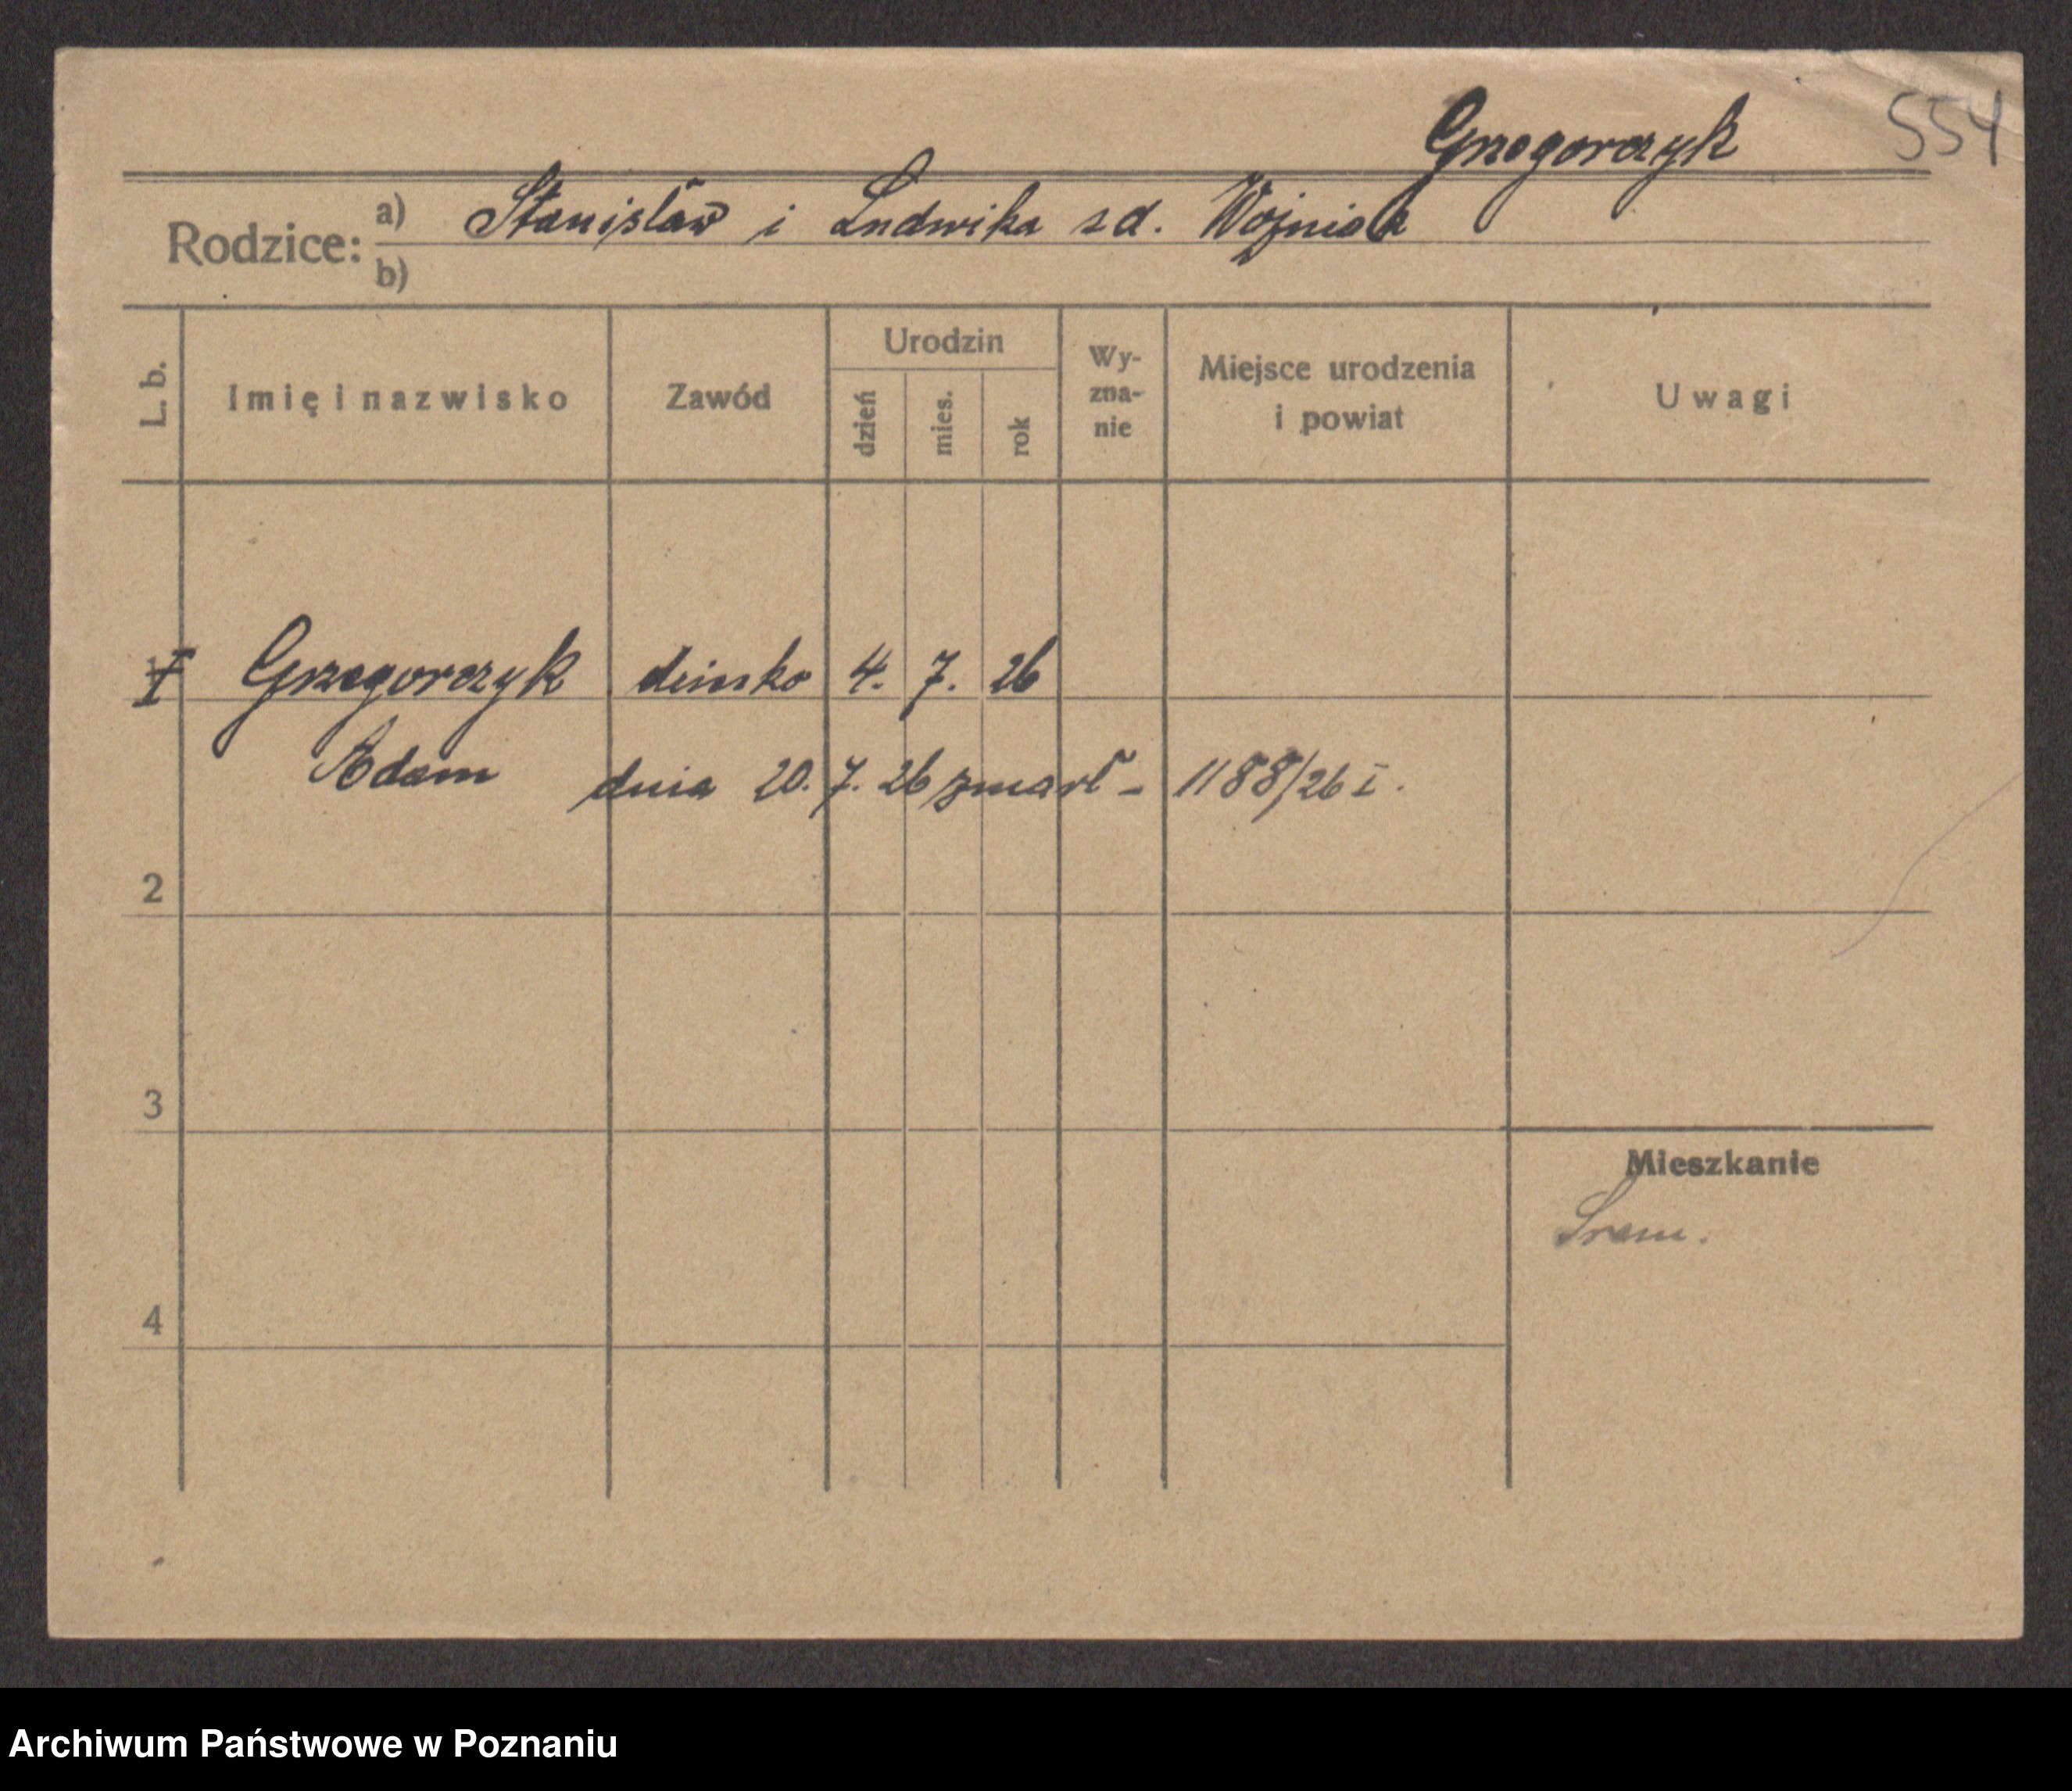 Grzegorczyk 554
Rodzice: a) Stanisław i Ludwika zd. Wojniak
b)
L. b. Imię i nazwisko Zawód Urodzin dzień mies. rok Wy-zna-nie Miejsce urodzenia i powiat Uwagi
Grzegorczyk 4. 7. 26
Adam dnia 20. 7. 26 zmarł - 1188/26 I.
2
3
Mieszkanie
Śrem.
4
Archiwum Państwowe w Poznaniu